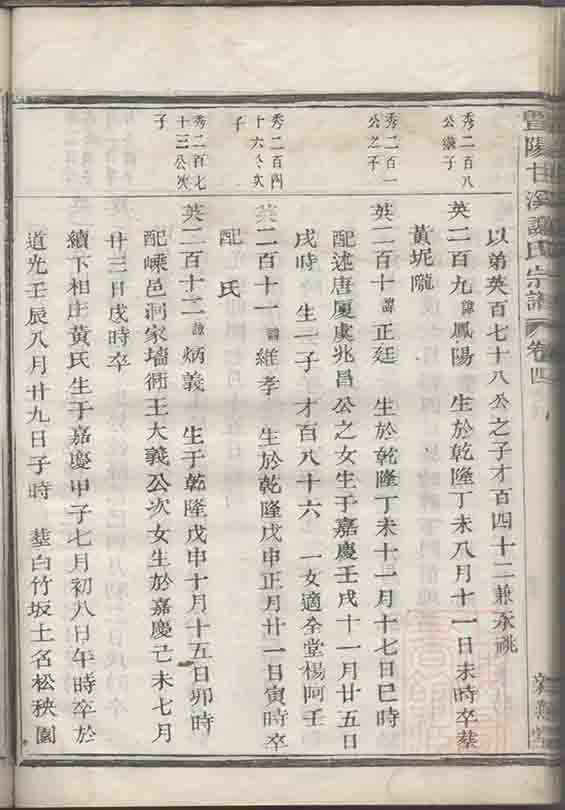 暨陽甘溪謝氏宗譜
卷四
以弟英百七十八公之子才百四十二兼承祧
秀二百八
公繼子
英二百九 諱 鳳陽 生於乾隆丁未八月十一日未時卒塟
黃坭隴
秀二百一
公之子
英二百十 諱 正廷 生於乾隆丁未十一月十七日巳時
配述唐厦虞兆昌公之女生于嘉慶壬戌十一月廿五日
戌時 生一子才百八十六 一女適全堂楊阿王
秀二百四
十六公次
子
英二百十一 諱 維孝 生於乾隆戊申正月廿一日寅時卒
配 氏
秀二百七
十三公次
子
英二百十二 諱 炳義 生于乾隆戊申十月十五日卯時
配嵊邑洞家墻衕王大義公次女生於嘉慶己未七月
廿三日戌時卒
續下相庄黃氏生于嘉慶甲子七月初八日午時卒於
道光壬辰八月廿九日子時 塟白竹坂土名松秧園